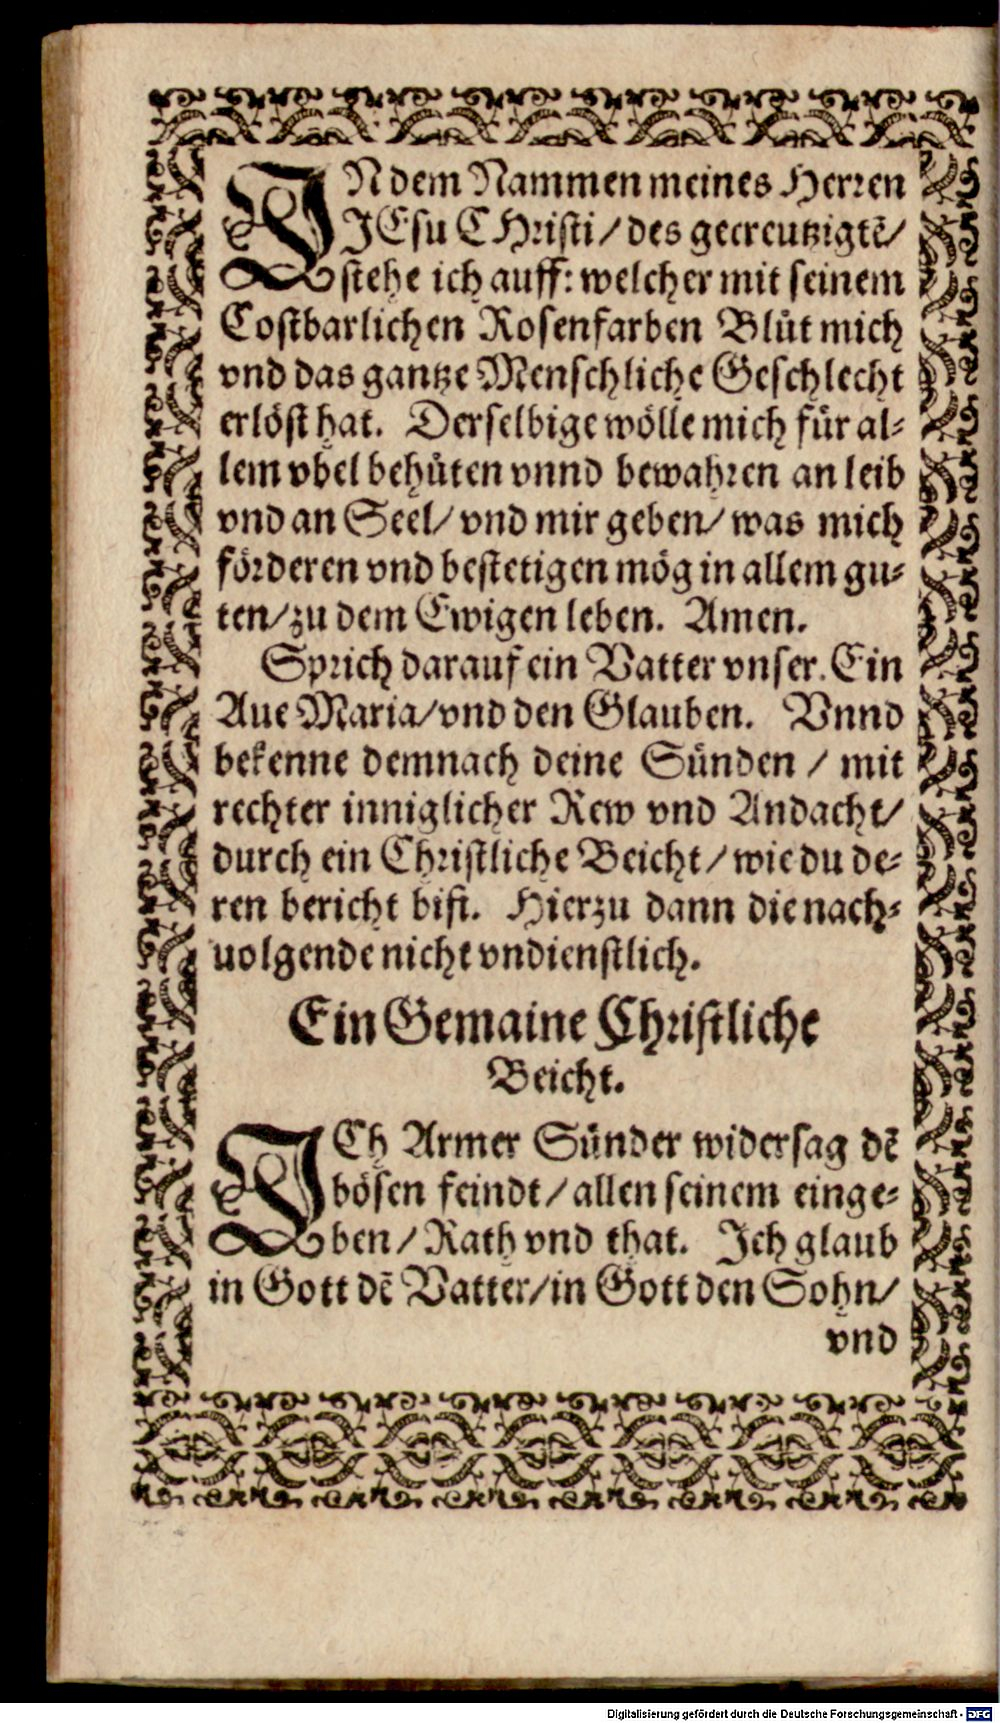 IN dem Nammen meines Herren
JEsu CHristi / des gecreutzigtẽ /
stehe ich auff: welcher mit seinem
Costbarlichen Rosenfarben Blůt mich
vnd das gantze Menschliche Geschlecht
erlöst hat. Derselbige wölle mich für al-
lem vbel behüten vnnd bewahren an leib
vnd an Seel / vnd mir geben / was mich
förderen vnd bestetigen mög in allem gu-
ten / zu dem Ewigen leben. Amen.
Sprich darauf ein Vatter vnser. Ein
Aue Maria / vnd den Glauben. Vnnd
bekenne demnach deine Sünden / mit
rechter inniglicher Rew vnd Andacht /
durch ein Christliche Beicht / wie du de-
ren bericht bist. Hierzu dann die nach-
uolgende nicht vndienstlich.
Ein Gemaine Christliche
Beicht.
ICh Armer Sünder widersag dẽ
bösen feindt / allen seinem einge-
ben / Rath vnd that. Ich glaub
in Gott dẽ Vatter / in Gott den Sohn /
vnd
Digitalisierung gefördert durch die Deutsche Forschungsgemeinschaft - DFG